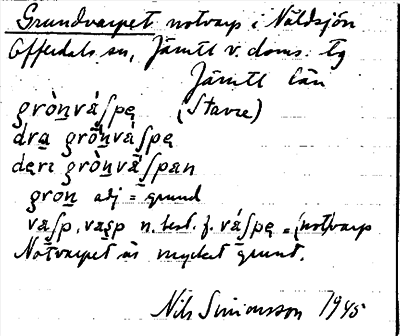 Grundvarpet notvarp i Näldsjön
Offerdals sn, Jämtl v. doms. tg
Jämtl län
grònvá̱ʃpę (Stavre)
dra grònvàʃpę
deri grònvàʃpan
gron adj = grund
vaʃp, vaʂp n. best. f. váʃpę = (not)varp
Notvarpet är mycket grunt.
Nils Simonsson 1945